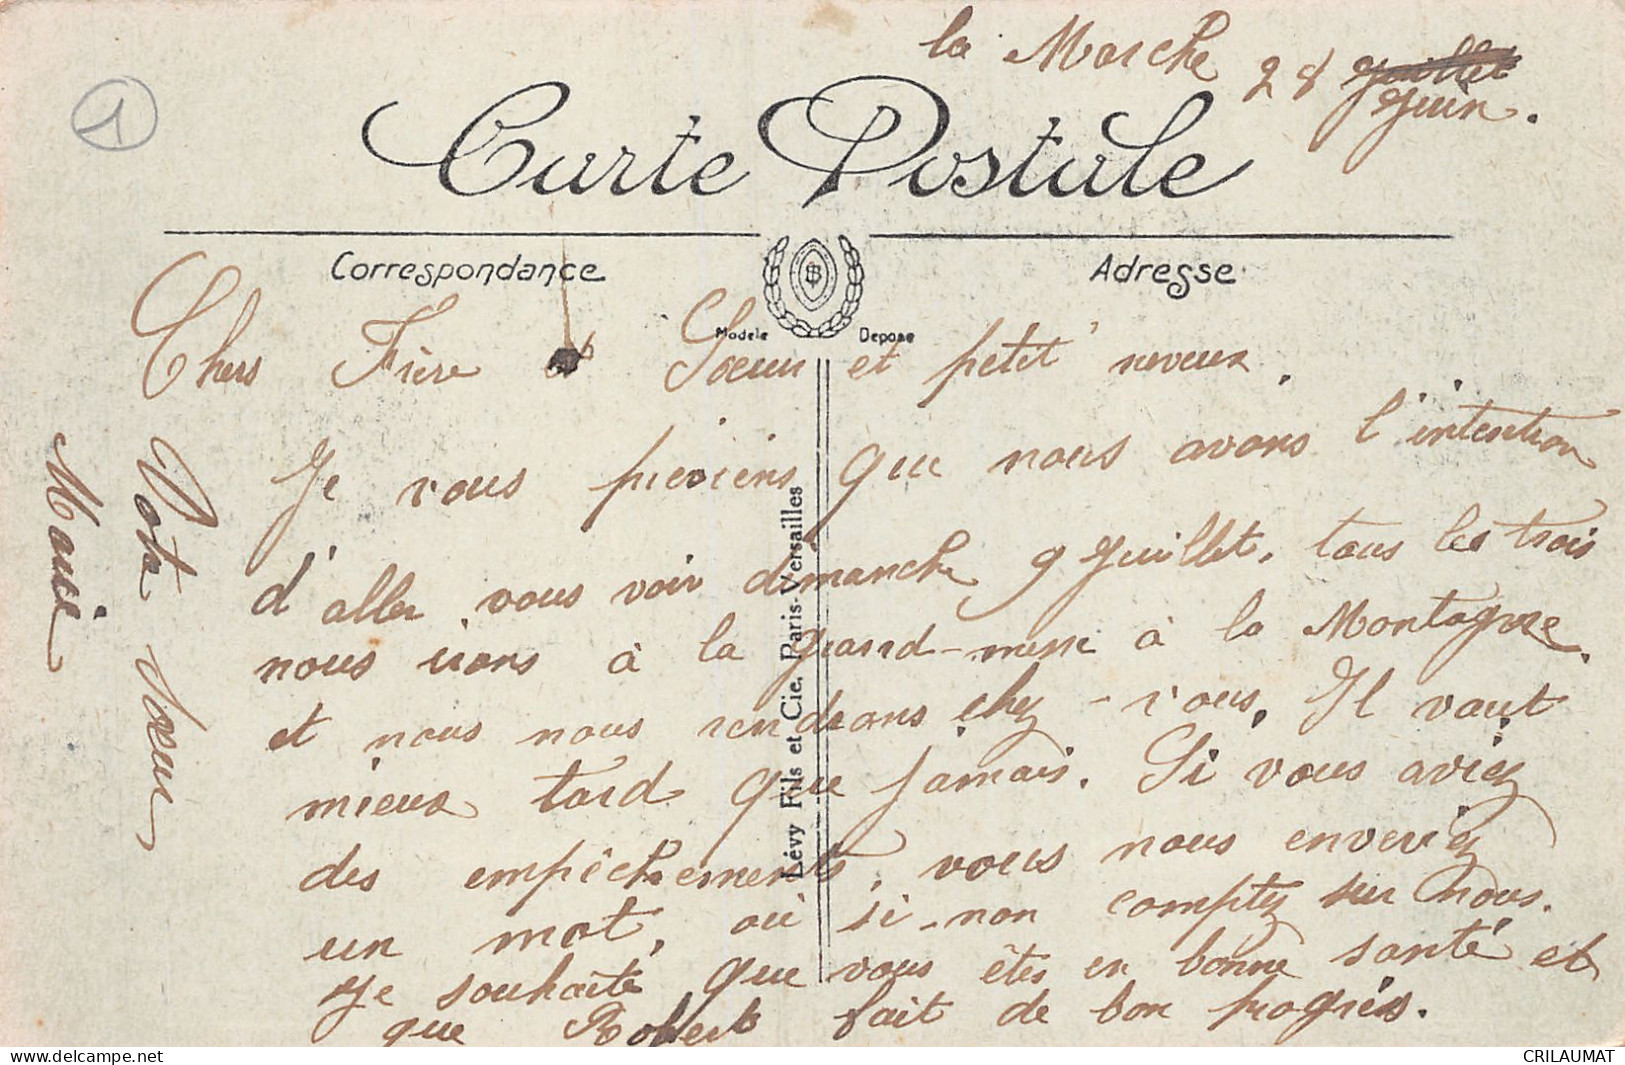 la Marche 28 Juillet
Juin.
1
Carte Postale
Correspondance
Adresse
Modèle Déposé
Chers Frère et Sœur et petit neveux.
Je vous préviens que nous avons l'intention
d'aller vous voir dimanche 9 Juillet, tous les trois
nous irons à la grand-messe à la Montagne.
et nous nous rendrons chez-vous. Il vaut
mieux tard que jamais. Si vous aviez
des empêchements, vous nous enveriez
un mot, ou si-non comptez sur nous.
Je souhaite que vous êtes en bonne santé et
que Robert fait de bon progrès.
Votre Sœur
Marie
Lévy Fils et Cie, Paris-Versailles
CRILAUMAT